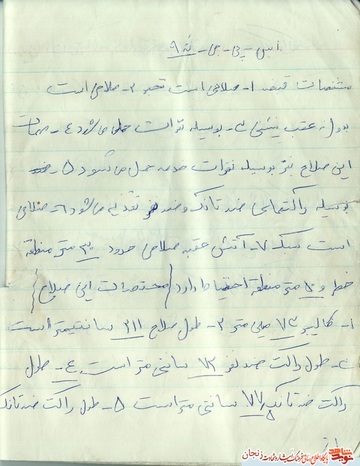 اس - پی - جی - نه ۹
مشخصات قبضه ۱- سلاحی است ۲- سلاحی است
بدون عقب نشینی ۳- بوسیله نفرات حمل می شود ۴- مهمات
این سلاح نیز بوسیله نفرات خدمه حمل می شود ۵-
بوسیله راکتهای ضد تانک و ضد نفر تغذیه می شود ۶- سلاحی
است سبک ۷- آتش عقبه سلاحی حدود ۳۰ متر منطقه
خطر و ۵۰ متر منطقه احتیاط دارد (مختصرات این سلاح)
۱- کالیبر ۷۳ میلی متر ۲- طول سلاح ۲۱۱ سانتیمتر است
۳- طول راکت ضد نفر ۷۳ سانتی متر است ۴- طول
راکت ضد تانک ۷۷ سانتی متر است ۵- طول راکت ضد تانک
زنجان